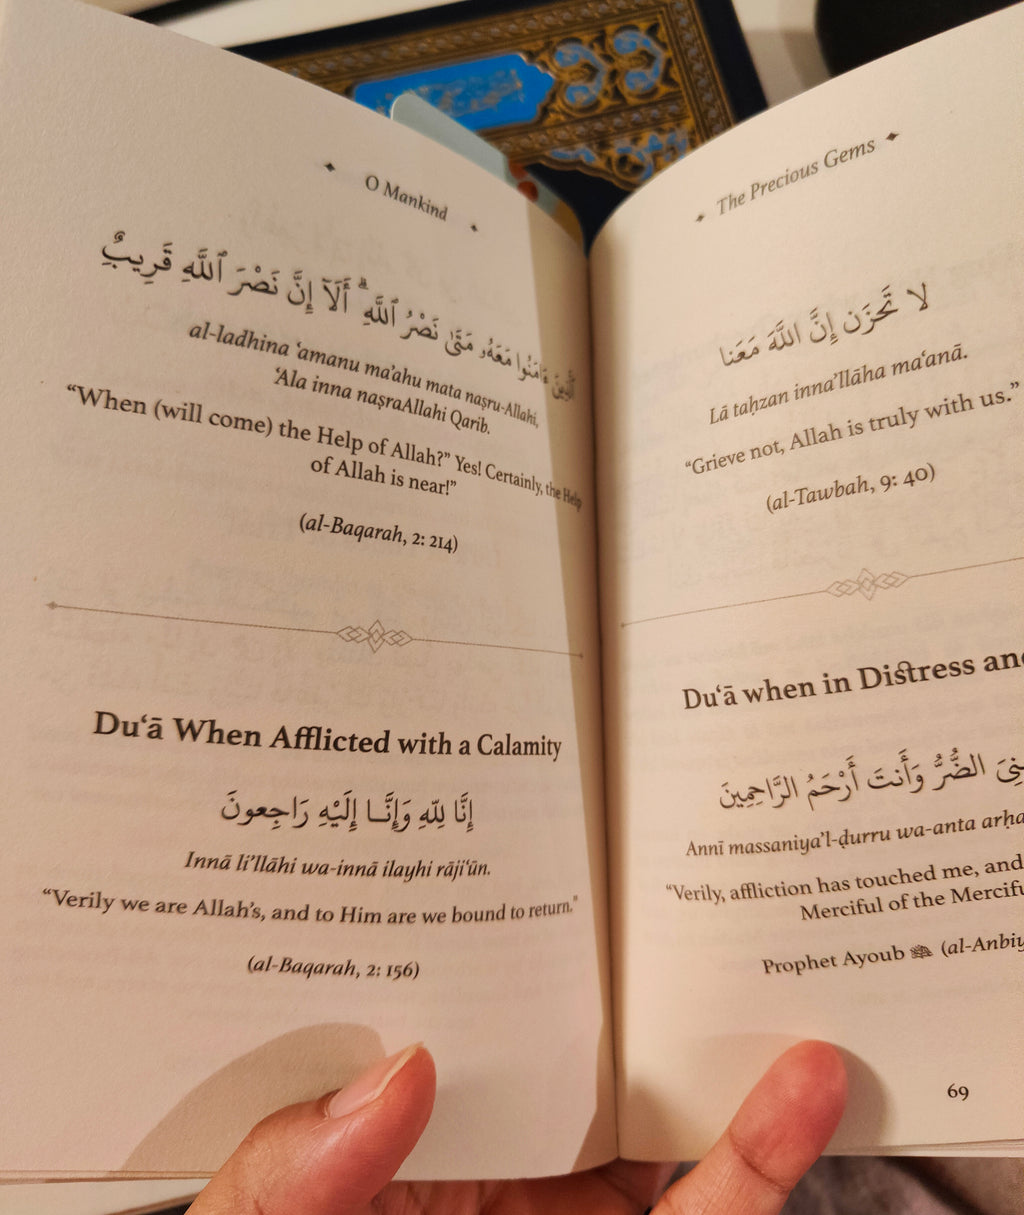 O Mankind
ٱلَّذِينَ ءَامَنُوا۟ مَعَهُۥ مَتَىٰ نَصْرُ ٱللَّهِ ۗ أَلَآ إِنَّ نَصْرَ ٱللَّهِ قَرِيبٌ
al-ladhina ‘amanu ma’ahu mata naṣru-Allahi,
‘Ala inna naṣraAllahi Qarib.
“When (will come) the Help of Allah?” Yes! Certainly, the Help
of Allah is near!”
(al-Baqarah, 2: 214)
Du‘ā When Afflicted with a Calamity
إِنَّا لِلّٰهِ وَإِنَّــا إِلَيْهِ رَاجِعونَ
Innā li’llāhi wa-innā ilayhi rāji‘ūn.
“Verily we are Allah’s, and to Him are we bound to return.”
(al-Baqarah, 2: 156)
The Precious Gems
لا تَحْزَن إِنَّ اللَّهَ مَعَنا
Lā taḥzan inna’llāha ma‘anā.
“Grieve not, Allah is truly with us.”
(al-Tawbah, 9: 40)
Du‘ā when in Distress and
الضُّرُّ وَأَنتَ أَرْحَمُ الرَّاحِمِينَ
Annī massaniya’l-ḍurru wa-anta arḥa
“Verily, affliction has touched me, and
Merciful of the Mercifu
Prophet Ayoub (al-Anbiy
69